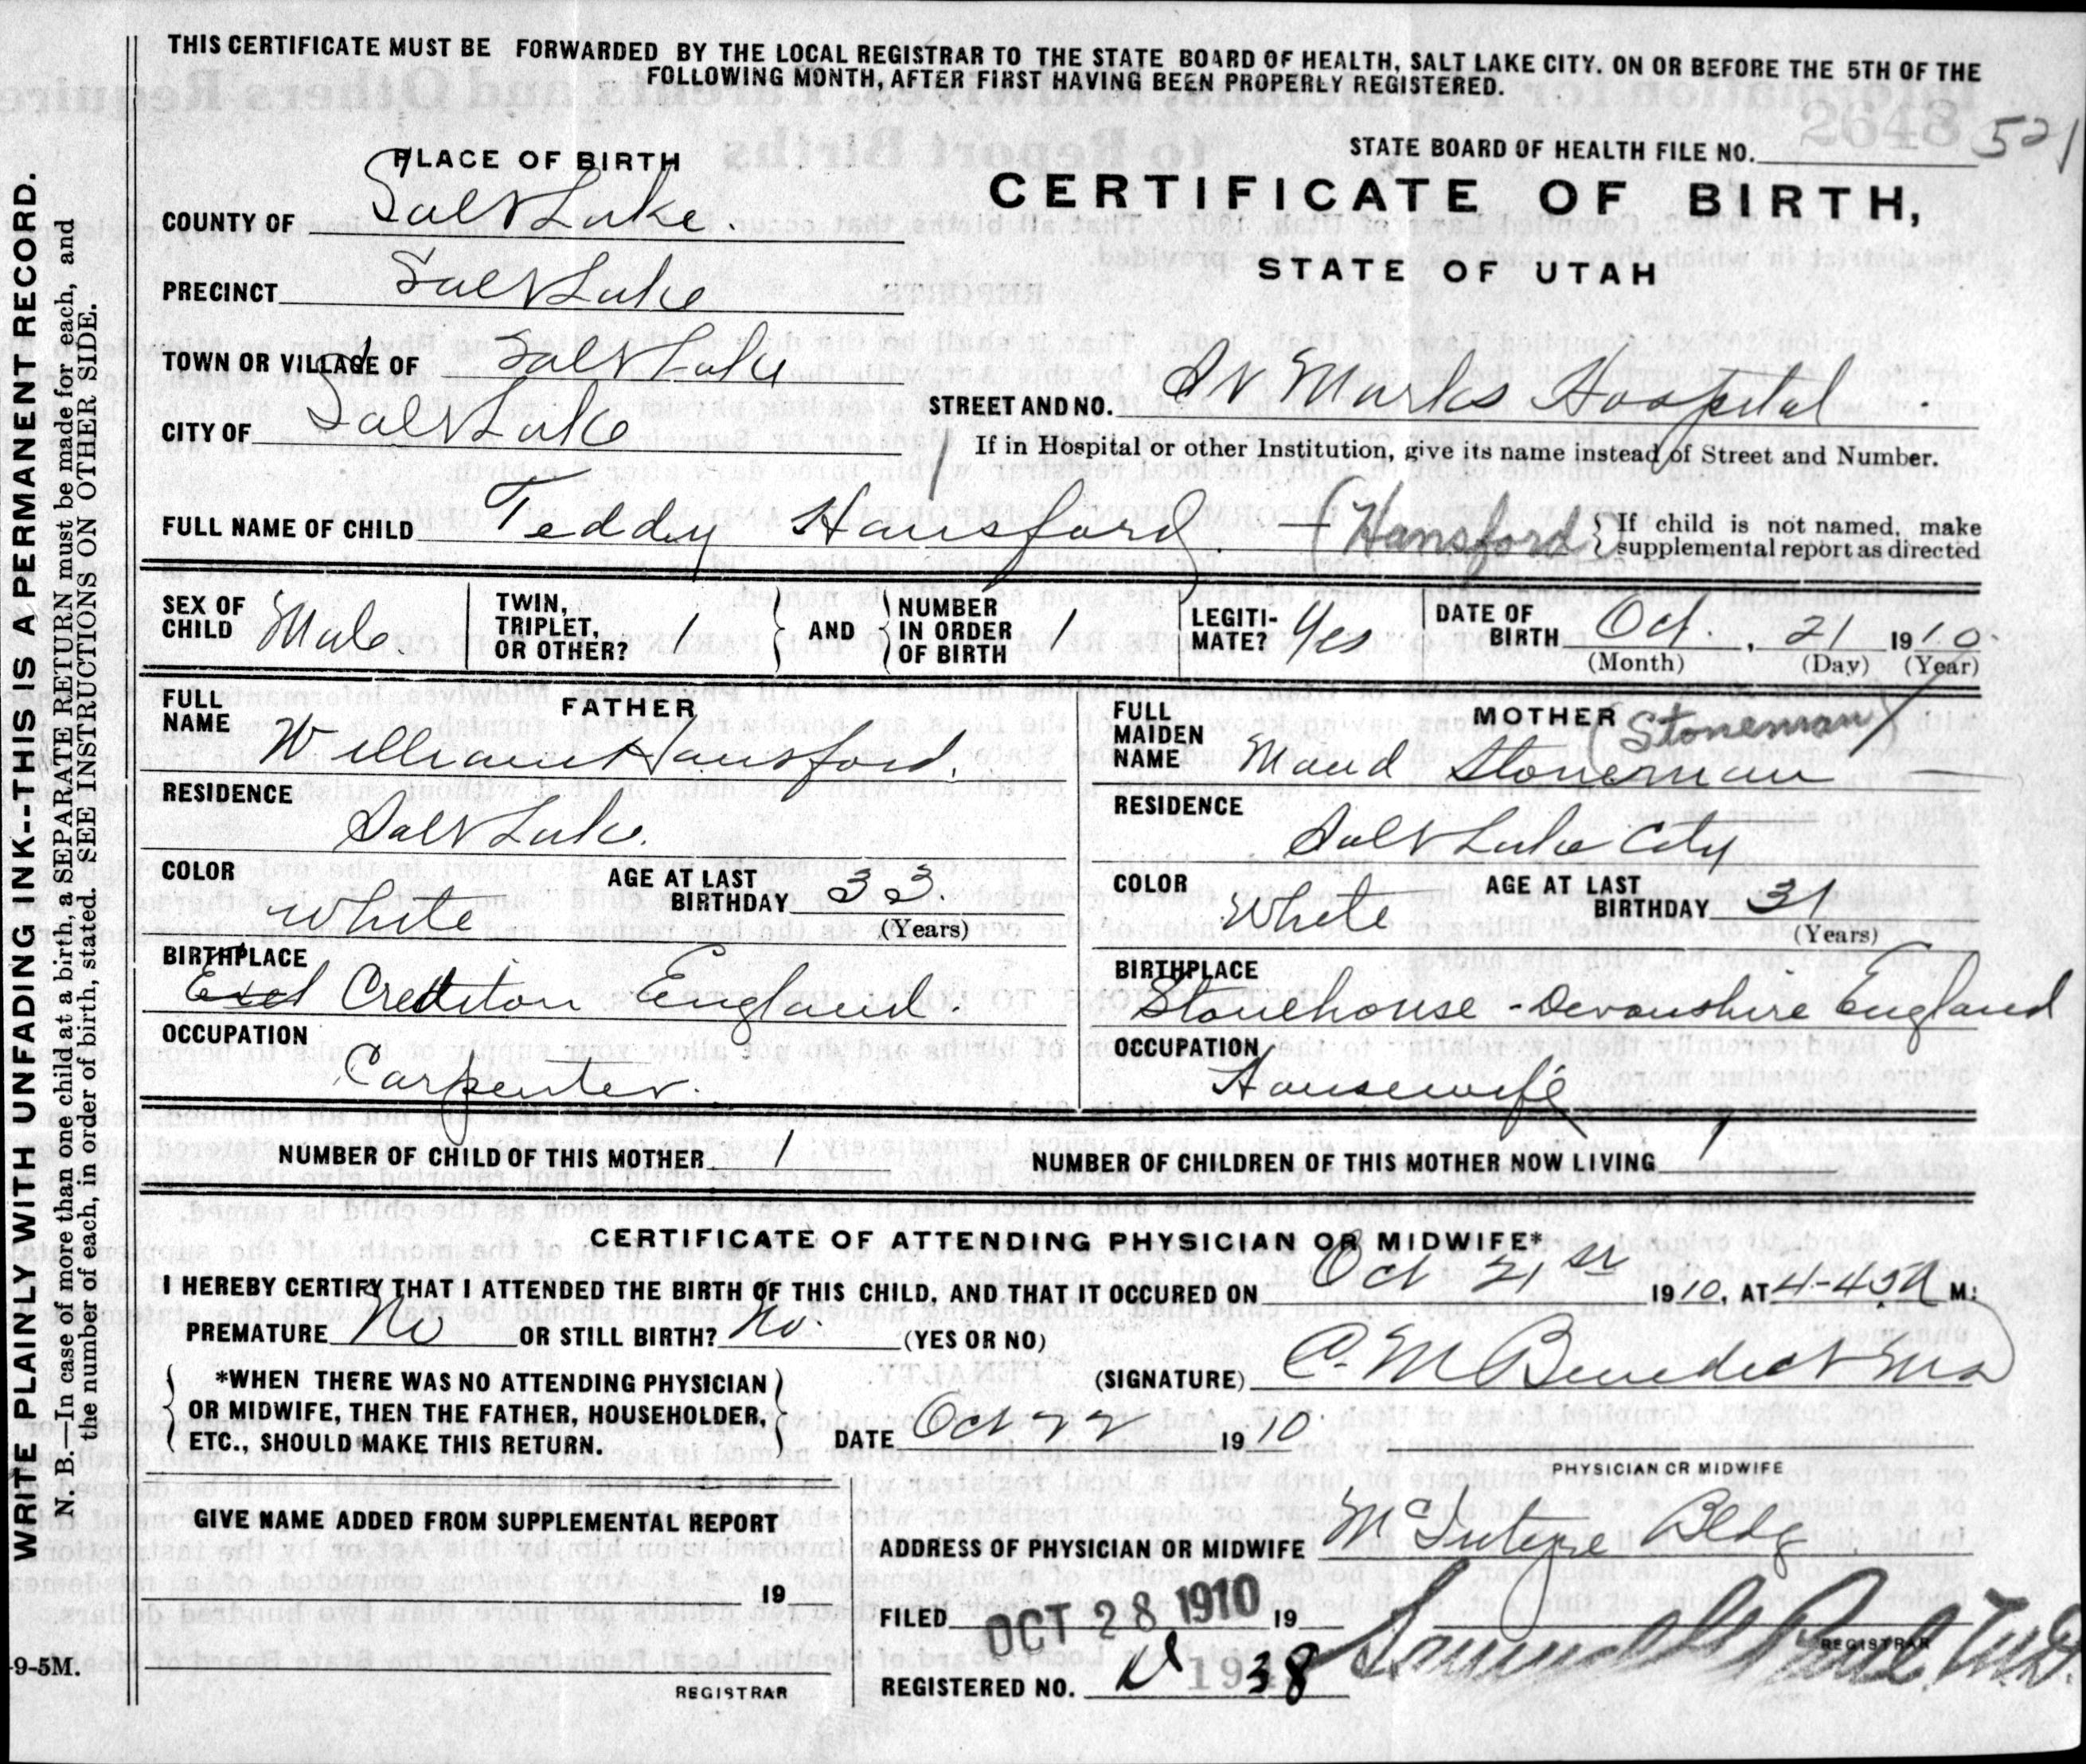 THIS CERTIFICATE MUST BE FORWARDED BY THE LOCAL REGISTRAR TO THE STATE BOARD OF HEALTH, SALT LAKE CITY. ON OR BEFORE THE 5TH OF THE
FOLLOWING MONTH, AFTER FIRST HAVING BEEN PROPERLY REGISTERED.
WRITE PLAINLY WITH UNFADING INK--THIS IS A PERMANENT RECORD.
N. B.—In case of more than one child at a birth, a SEPARATE RETURN must be made for each, and
the number of each, in order of birth, stated. SEE INSTRUCTIONS ON OTHER SIDE.
STATE BOARD OF HEALTH FILE NO. 2648 521
PLACE OF BIRTH
CERTIFICATE OF BIRTH,
STATE OF UTAH
COUNTY OF Salt Lake.
PRECINCT Salt Lake
TOWN OR VILLAGE OF Salt Lake
CITY OF Salt Lake
STREET AND NO. St Marks Hospital
If in Hospital or other Institution, give its name instead of Street and Number.
FULL NAME OF CHILD Teddy Hansford. (Hansford) If child is not named, make
supplemental report as directed
SEX OF CHILD Male
TWIN, TRIPLET, OR OTHER? 1
AND
NUMBER IN ORDER OF BIRTH 1
LEGITIMATE? Yes
DATE OF BIRTH Oct. , 21 1910
(Month) (Day) (Year)
FATHER
FULL NAME William Hansford.
RESIDENCE
Salt Lake.
COLOR White
AGE AT LAST BIRTHDAY 33
(Years)
BIRTHPLACE
Crediton England.
OCCUPATION
Carpenter.
MOTHER (Stoneman)
FULL MAIDEN NAME Maud Stoneman
RESIDENCE
Salt Lake City
COLOR White
AGE AT LAST BIRTHDAY 31
(Years)
BIRTHPLACE
Stonehouse - Devonshire England
OCCUPATION
Housewife
NUMBER OF CHILD OF THIS MOTHER 1
NUMBER OF CHILDREN OF THIS MOTHER NOW LIVING 1
CERTIFICATE OF ATTENDING PHYSICIAN OR MIDWIFE*
I HEREBY CERTIFY THAT I ATTENDED THE BIRTH OF THIS CHILD, AND THAT IT OCCURED ON Oct 21st 1910, AT 4-45 A M.
PREMATURE No OR STILL BIRTH? No. (YES OR NO)
*WHEN THERE WAS NO ATTENDING PHYSICIAN
OR MIDWIFE, THEN THE FATHER, HOUSEHOLDER,
ETC., SHOULD MAKE THIS RETURN.
(SIGNATURE) C. M Benedict MD
DATE Oct 22 1910
PHYSICIAN OR MIDWIFE
GIVE NAME ADDED FROM SUPPLEMENTAL REPORT
19
REGISTRAR
ADDRESS OF PHYSICIAN OR MIDWIFE McIntyre Bldg
FILED OCT 28 1910 19
REGISTRAR
REGISTERED NO. 38
9-5M.